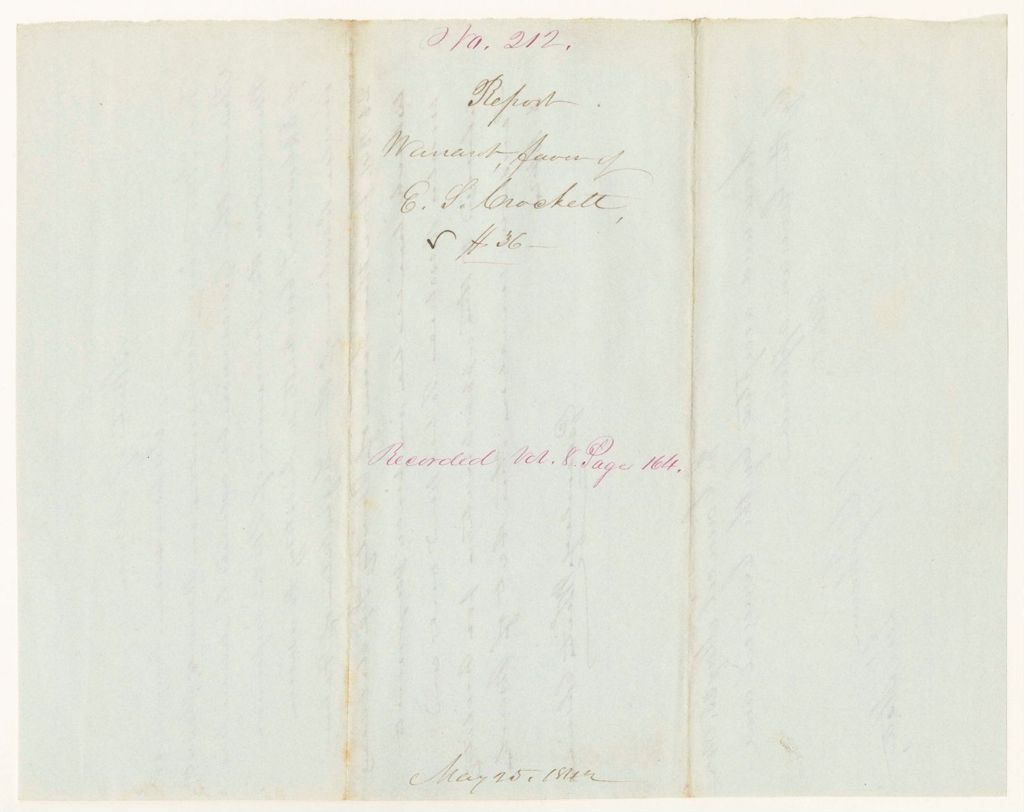 No. 212.
Report
Warrant, favor of
E. S. Crockett,
✓ $36—
Recorded Vol. 8. Page 164.
May 25. 1842